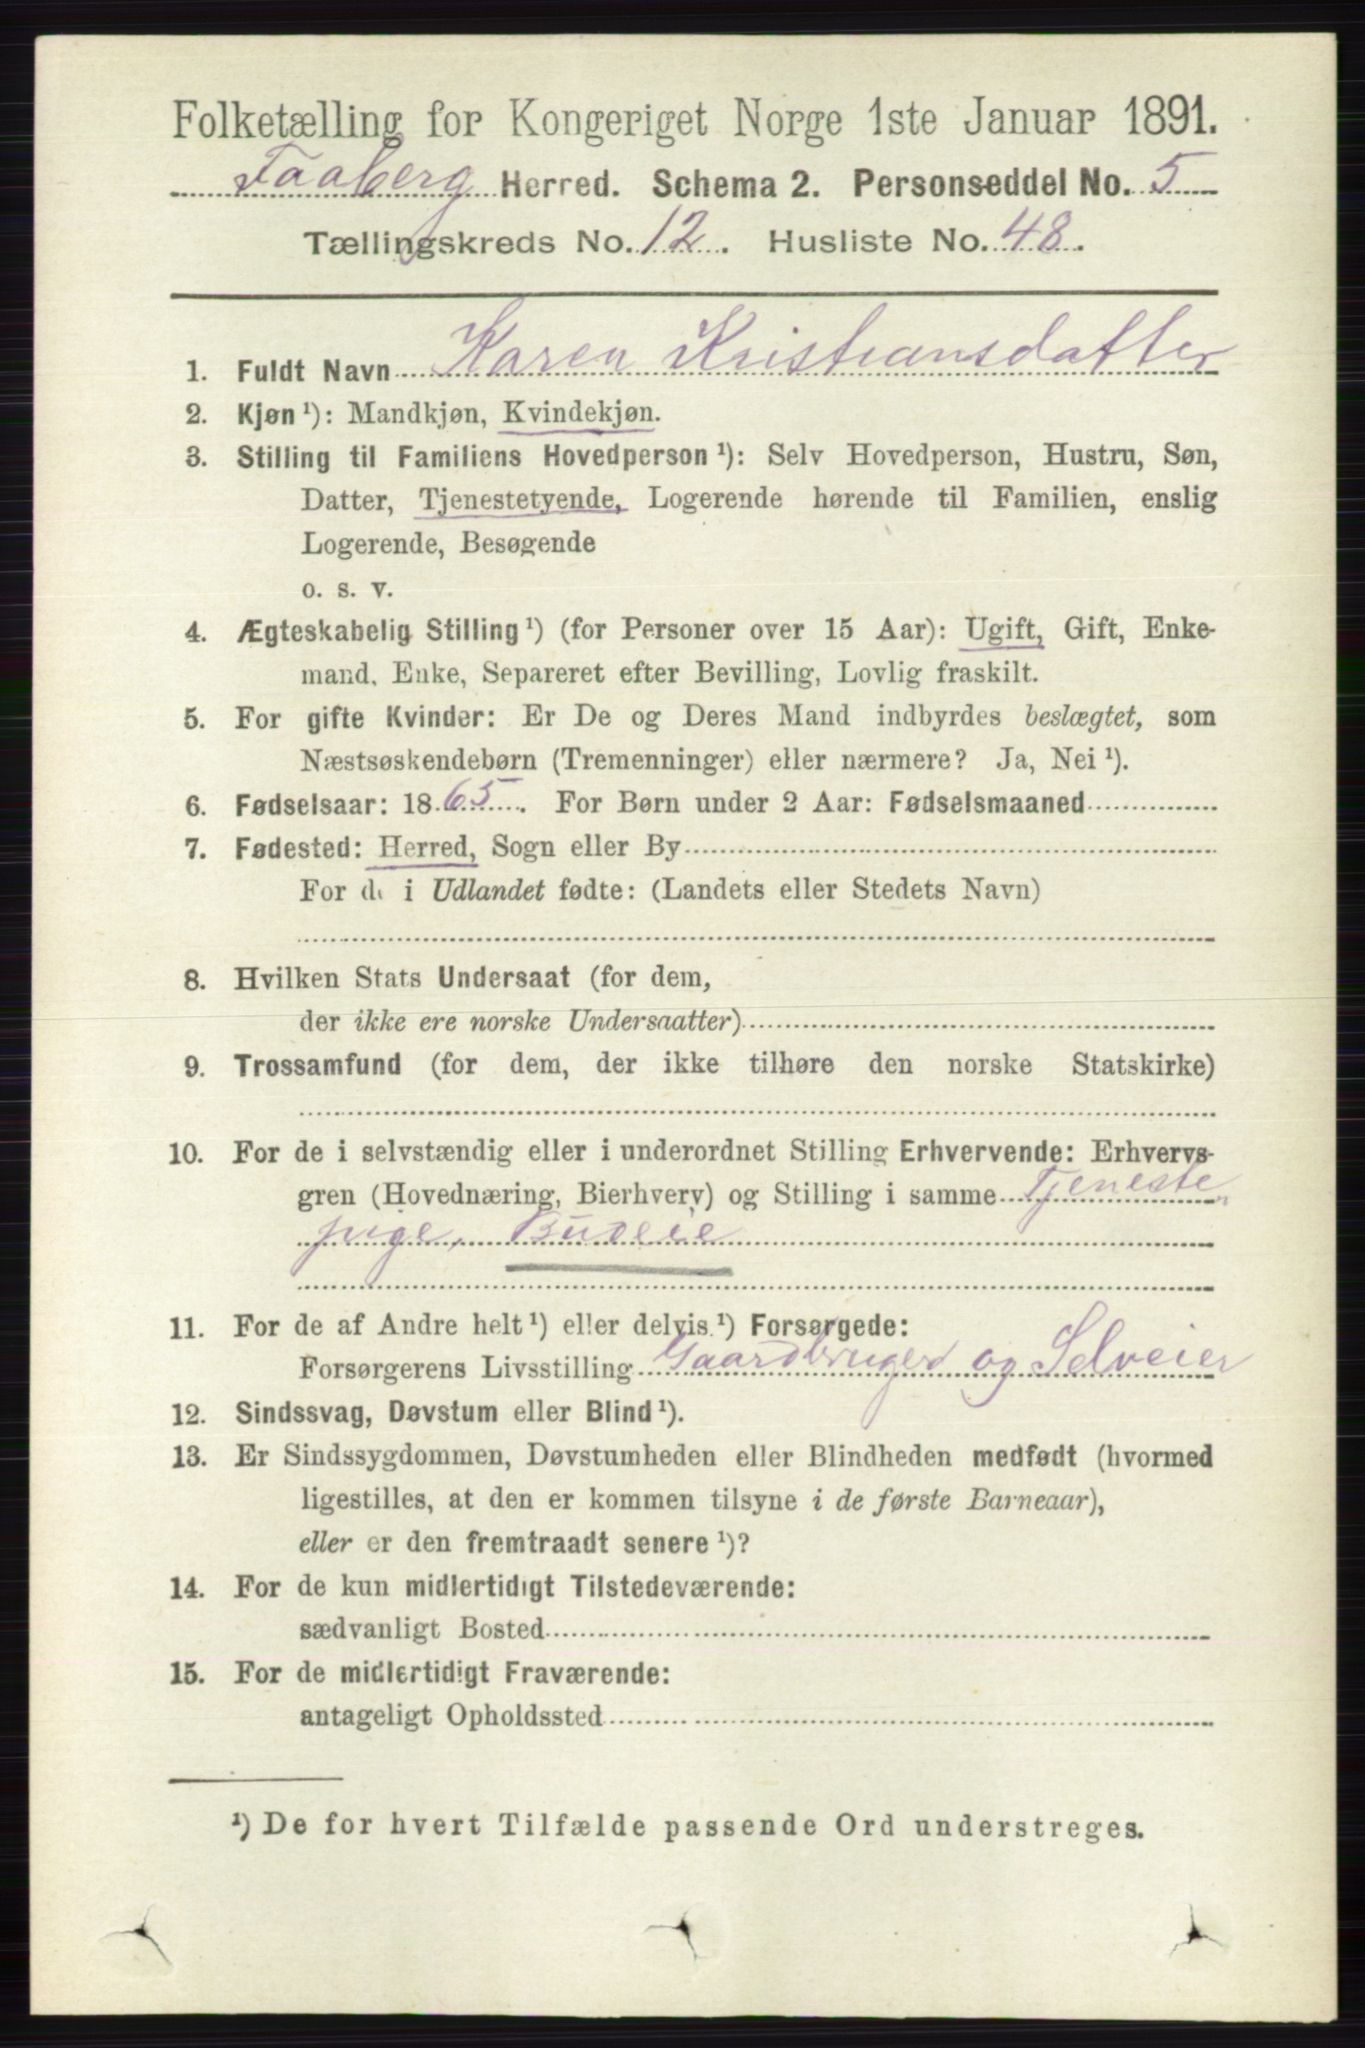 Folketælling for Kongeriget Norge 1ste Januar 1891.
Faaberg Herred. Schema 2. Personseddel No. 5
Tællingskreds No. 12. Husliste No. 48.
1. Fuldt Navn Karen Kristiansdatter
2. Kjøn ¹): Mandkjøn, Kvindekjøn.
3. Stilling til Familiens Hovedperson ¹): Selv Hovedperson, Hustru, Søn,
Datter, Tjenestetyende, Logerende hørende til Familien, enslig
Logerende, Besøgende
o. s. v.
4. Ægteskabelig Stilling ¹) (for Personer over 15 Aar): Ugift, Gift, Enke-
mand, Enke, Separeret efter Bevilling, Lovlig fraskilt.
5. For gifte Kvinder: Er De og Deres Mand indbyrdes beslægtet, som
Næstsøskendebørn (Tremenninger) eller nærmere? Ja, Nei ¹).
6. Fødselsaar: 1865. For Børn under 2 Aar: Fødselsmaaned
7. Fødested: Herred, Sogn eller By
For de i Udlandet fødte: (Landets eller Stedets Navn)
8. Hvilken Stats Undersaat (for dem,
der ikke ere norske Undersaatter)
9. Trossamfund (for dem, der ikke tilhøre den norske Statskirke)
10. For de i selvstændig eller i underordnet Stilling Erhvervende: Erhvervs-
gren (Hovednæring, Bierhverv) og Stilling i samme Tjeneste
pige, Budeie
11. For de af Andre helt ¹) eller delvis ¹) Forsørgede:
Forsørgerens Livsstilling Gaardbruger og Selveier
12. Sindssvag, Døvstum eller Blind ¹).
13. Er Sindssygdommen, Døvstumheden eller Blindheden medfødt (hvormed
ligestilles, at den er kommen tilsyne i de første Barneaar),
eller er den fremtraadt senere ¹)?
14. For de kun midlertidigt Tilstedeværende:
sædvanligt Bosted
15. For de midlertidigt Fraværende:
antageligt Opholdssted
¹) De for hvert Tilfælde passende Ord understreges.